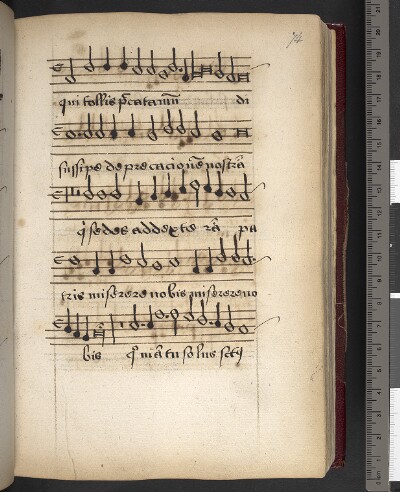 74
qui tollis pccata mū di
suscipe deprecacionē nostrā
q sedes ad dexte rā pa
tris miserere nobis miserere no
bis qm̄ tu solus sctꝫ